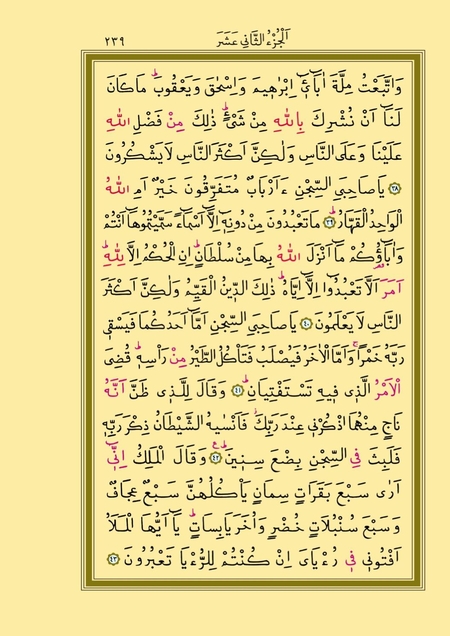 اَلْجُزْءُ الثَّانِي عَشَرَ ٢٣٩
وَاتَّبَعْتُ مِلَّةَ اٰبَٓاء۪ٓي اِبْرٰه۪يمَ وَاِسْحٰقَ وَيَعْقُوبَۜ مَا كَانَ
لَنَٓا اَنْ نُشْرِكَ بِاللّٰهِ مِنْ شَيْءٍۜ ذٰلِكَ مِنْ فَضْلِ اللّٰهِ
عَلَيْنَا وَعَلَى النَّاسِ وَلٰكِنَّ اَكْثَرَ النَّاسِ لَا يَشْكُرُونَ
﴿٣٨﴾ يَا صَاحِبَيِ السِّجْنِ ءَاَرْبَابٌ مُتَفَرِّقُونَ خَيْرٌ اَمِ اللّٰهُ
الْوَاحِدُ الْقَهَّارُۜ ﴿٣٩﴾ مَا تَعْبُدُونَ مِنْ دُونِه۪ٓ اِلَّٓا اَسْمَٓاءً سَمَّيْتُمُوهَٓا اَنْتُمْ
وَاٰبَٓاؤُ۬كُمْ مَٓا اَنْزَلَ اللّٰهُ بِهَا مِنْ سُلْطَانٍۜ اِنِ الْحُكْمُ اِلَّا لِلّٰهِۜ
اَمَرَ اَلَّا تَعْبُدُٓوا اِلَّٓا اِيَّاهُۜ ذٰلِكَ الدّ۪ينُ الْقَيِّمُ وَلٰكِنَّ اَكْثَرَ
النَّاسِ لَا يَعْلَمُونَ ﴿٤٠﴾ يَا صَاحِبَيِ السِّجْنِ اَمَّٓا اَحَدُكُمَا فَيَسْق۪ي
رَبَّهُ خَمْرًاۚ وَاَمَّا الْاٰخَرُ فَيُصْلَبُ فَتَأْكُلُ الطَّيْرُ مِنْ رَأْسِه۪ۜ قُضِيَ
الْاَمْرُ الَّذ۪ي ف۪يهِ تَسْتَفْتِيَانِۜ ﴿٤١﴾ وَقَالَ لِلَّذ۪ي ظَنَّ اَنَّهُ
نَاجٍ مِنْهُمَا اذْكُرْن۪ي عِنْدَ رَبِّكَۘ فَاَنْسٰيهُ الشَّيْطَانُ ذِكْرَ رَبِّه۪
فَلَبِثَ فِي السِّجْنِ بِضْعَ سِن۪ينَۜ۟ ﴿٤٢﴾ وَقَالَ الْمَلِكُ اِنّ۪ٓي
اَرٰى سَبْعَ بَقَرَاتٍ سِمَانٍ يَأْكُلُهُنَّ سَبْعٌ عِجَافٌ
وَسَبْعَ سُنْبُلَاتٍ خُضْرٍ وَاُخَرَ يَابِسَاتٍۜ يَٓا اَيُّهَا الْمَلَاُ
اَفْتُون۪ي ف۪ي رُءْيَايَ اِنْ كُنْتُمْ لِلرُّءْيَا تَعْبُرُونَ ﴿٤٣﴾